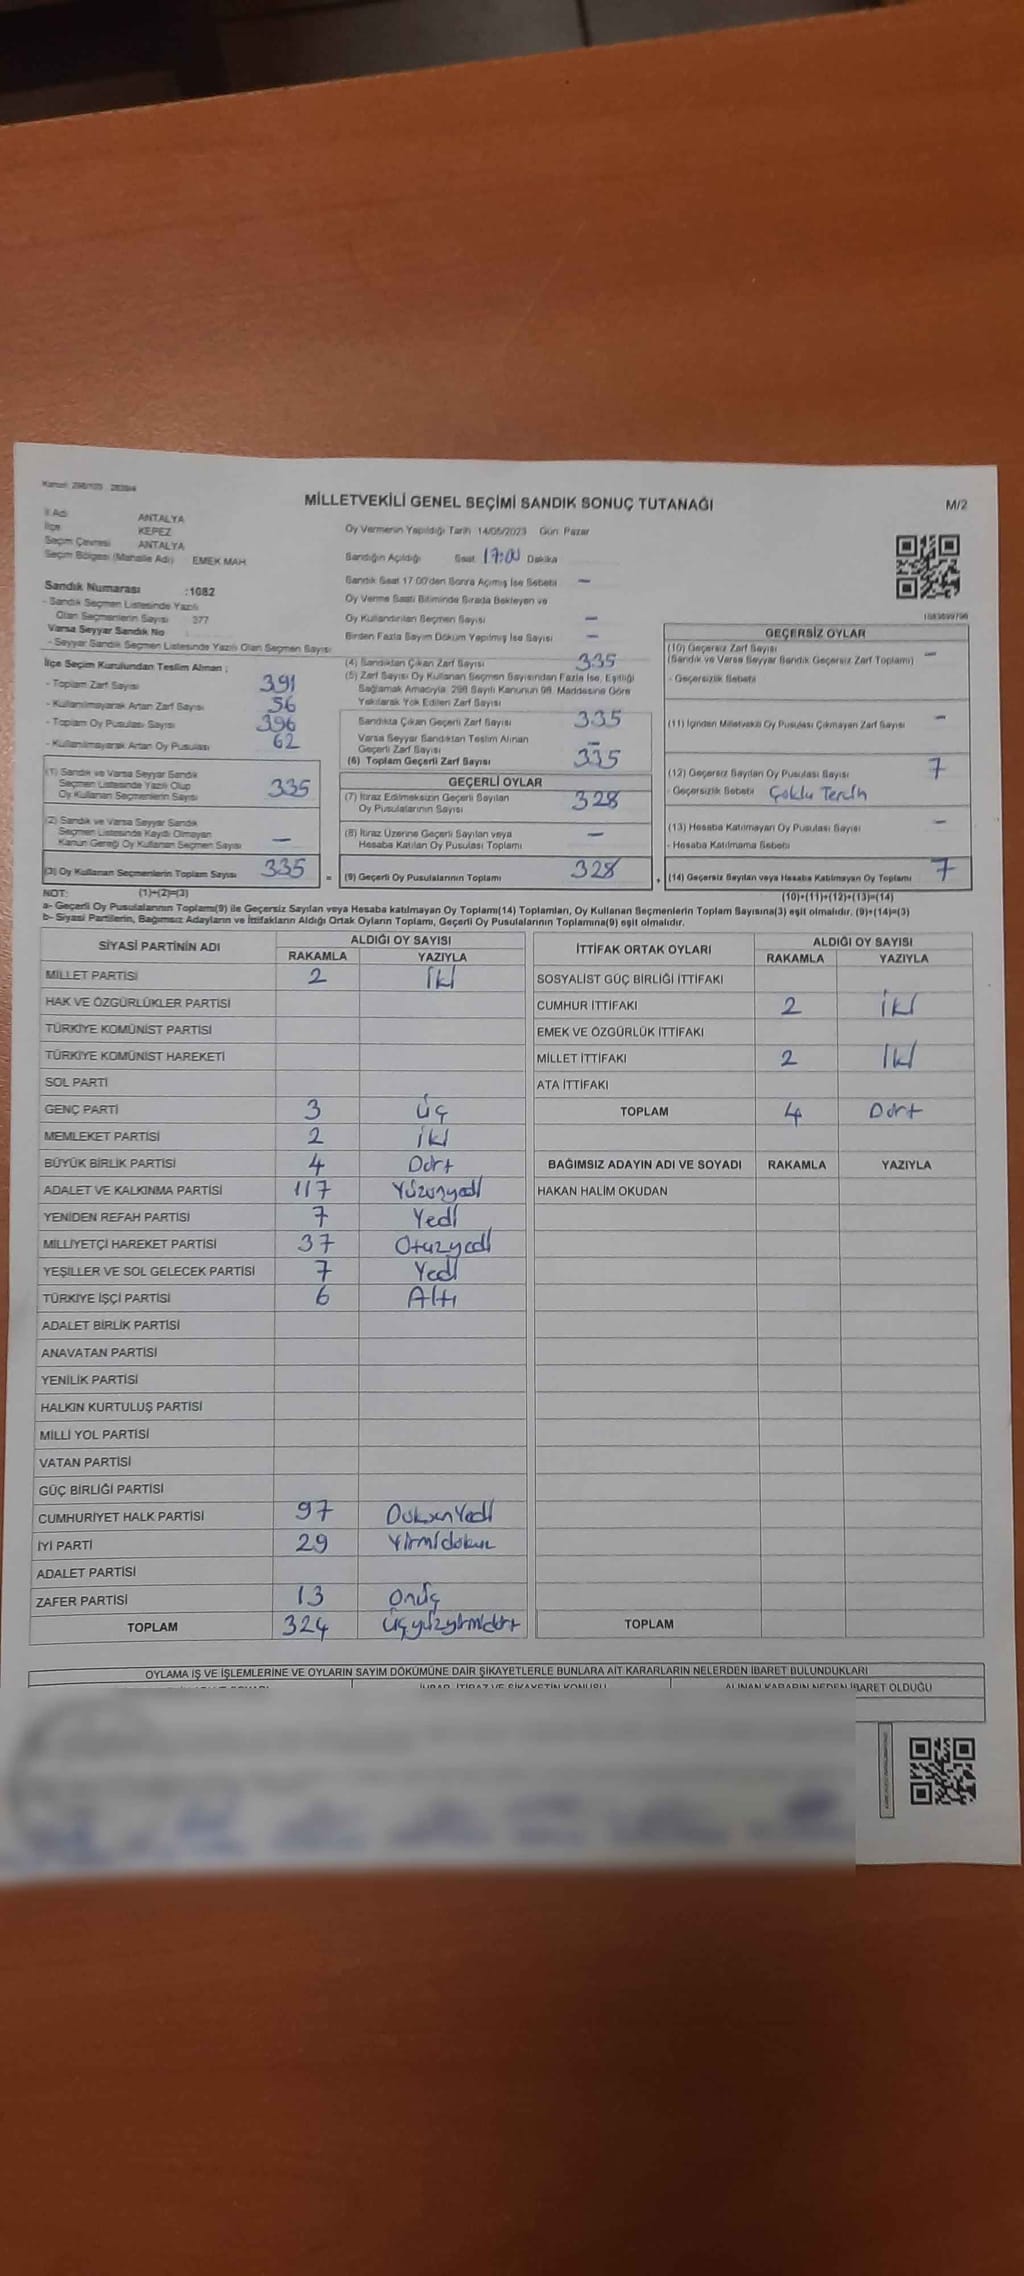 Kanun: 298/105 2839/4
MİLLETVEKİLİ GENEL SEÇİMİ SANDIK SONUÇ TUTANAĞI
M/2
İl Adı ANTALYA
İlçe KEPEZ
Seçim Çevresi ANTALYA
Seçim Bölgesi (Mahalle Adı) EMEK MAH.
Sandık Numarası :1082
- Sandık Seçmen Listesinde Yazılı
Olan Seçmenlerin Sayısı 377
Varsa Seyyar Sandık No
- Seyyar Sandık Seçmen Listesinde Yazılı Olan Seçmen Sayısı
Oy Vermenin Yapıldığı Tarih 14/05/2023 Gün Pazar
Sandığın Açıldığı Saat 17:00 Dakika
Sandık Saat 17:00'den Sonra Açmış İse Sebebi –
Oy Verme Saati Bitiminde Sırada Bekleyen ve
Oy Kullandırılan Seçmen Sayısı –
Birden Fazla Sayım Döküm Yapılmış İse Sayısı –
İlçe Seçim Kurulundan Teslim Alınan :
- Toplam Zarf Sayısı 391
- Kullanılmayarak Artan Zarf Sayısı 56
- Toplam Oy Pusulası Sayısı 396
- Kullanılmayarak Artan Oy Pusulası 62
(1) Sandık ve Varsa Seyyar Sandık
Seçmen Listesinde Yazılı Olup
Oy Kullanan Seçmenlerin Sayısı 335
(2) Sandık ve Varsa Seyyar Sandık
Seçmen Listesinde Kaydı Olmayan
Kanun Gereği Oy Kullanan Seçmen Sayısı –
(3) Oy Kullanan Seçmenlerin Toplam Sayısı 335 =
(4) Sandıktan Çıkan Zarf Sayısı 335
(5) Zarf Sayısı Oy Kullanan Seçmen Sayısından Fazla İse, Eşitliği
Sağlamak Amacıyla, 298 Sayılı Kanunun 98. Maddesine Göre
Yakılarak Yok Edilen Zarf Sayısı
Sandıkta Çıkan Geçerli Zarf Sayısı 335
Varsa Seyyar Sandıktan Teslim Alınan
Geçerli Zarf Sayısı –
(6) Toplam Geçerli Zarf Sayısı 335
GEÇERLİ OYLAR
(7) İtiraz Edilmeksizin Geçerli Sayılan
Oy Pusulalarının Sayısı 328
(8) İtiraz Üzerine Geçerli Sayılan veya
Hesaba Katılan Oy Pusulası Toplamı –
(9) Geçerli Oy Pusulalarının Toplamı 328 +
GEÇERSİZ OYLAR
(10) Geçersiz Zarf Sayısı
(Sandık ve Varsa Seyyar Sandık Geçersiz Zarf Toplamı) –
- Geçersizlik Sebebi
(11) İçinden Milletvekili Oy Pusulası Çıkmayan Zarf Sayısı –
(12) Geçersiz Sayılan Oy Pusulası Sayısı 7
- Geçersizlik Sebebi Çoklu Tercih
(13) Hesaba Katılmayan Oy Pusulası Sayısı –
- Hesaba Katılmama Sebebi
(14) Geçersiz Sayılan veya Hesaba Katılmayan Oy Toplamı 7
NOT: (1)+(2)=(3)
(10)+(11)+(12)+(13)=(14)
a- Geçerli Oy Pusulalarının Toplamı(9) ile Geçersiz Sayılan veya Hesaba katılmayan Oy Toplamı(14) Toplamları, Oy Kullanan Seçmenlerin Toplam Sayısına(3) eşit olmalıdır. (9)+(14)=(3)
b- Siyasi Partilerin, Bağımsız Adayların ve İttifakların Aldığı Ortak Oyların Toplamı, Geçerli Oy Pusulalarının Toplamına(9) eşit olmalıdır.
SİYASİ PARTİNİN ADI ALDIĞI OY SAYISI
RAKAMLA YAZIYLA
MİLLET PARTİSİ 2 İki
HAK VE ÖZGÜRLÜKLER PARTİSİ
TÜRKİYE KOMÜNİST PARTİSİ
TÜRKİYE KOMÜNİST HAREKETİ
SOL PARTİ
GENÇ PARTİ 3 Üç
MEMLEKET PARTİSİ 2 iki
BÜYÜK BİRLİK PARTİSİ 4 Dört
ADALET VE KALKINMA PARTİSİ 117 Yüzonyedi
YENİDEN REFAH PARTİSİ 7 Yedi
MİLLİYETÇİ HAREKET PARTİSİ 37 Otuzyedi
YEŞİLLER VE SOL GELECEK PARTİSİ 7 Yedi
TÜRKİYE İŞÇİ PARTİSİ 6 Altı
ADALET BİRLİK PARTİSİ
ANAVATAN PARTİSİ
YENİLİK PARTİSİ
HALKIN KURTULUŞ PARTİSİ
MİLLİ YOL PARTİSİ
VATAN PARTİSİ
GÜÇ BİRLİĞİ PARTİSİ
CUMHURİYET HALK PARTİSİ 97 DoksanYedi
İYİ PARTİ 29 Yirmidokuz
ADALET PARTİSİ
ZAFER PARTİSİ 13 Onüç
TOPLAM 324 Üçyüzyirmidört
İTTİFAK ORTAK OYLARI ALDIĞI OY SAYISI
RAKAMLA YAZIYLA
SOSYALİST GÜÇ BİRLİĞİ İTTİFAKI
CUMHUR İTTİFAKI 2 İki
EMEK VE ÖZGÜRLÜK İTTİFAKI
MİLLET İTTİFAKI 2 İki
ATA İTTİFAKI
TOPLAM 4 Dört
BAĞIMSIZ ADAYIN ADI VE SOYADI RAKAMLA YAZIYLA
HAKAN HALİM OKUDAN
TOPLAM
OYLAMA İŞ VE İŞLEMLERİNE VE OYLARIN SAYIM DÖKÜMÜNE DAİR ŞİKAYETLERLE BUNLARA AİT KARARLARIN NELERDEN İBARET BULUNDUKLARI
İHBAR, İTİRAZ VE ŞİKAYETİN KONUSU ALINAN KARARIN NEDEN İBARET OLDUĞU